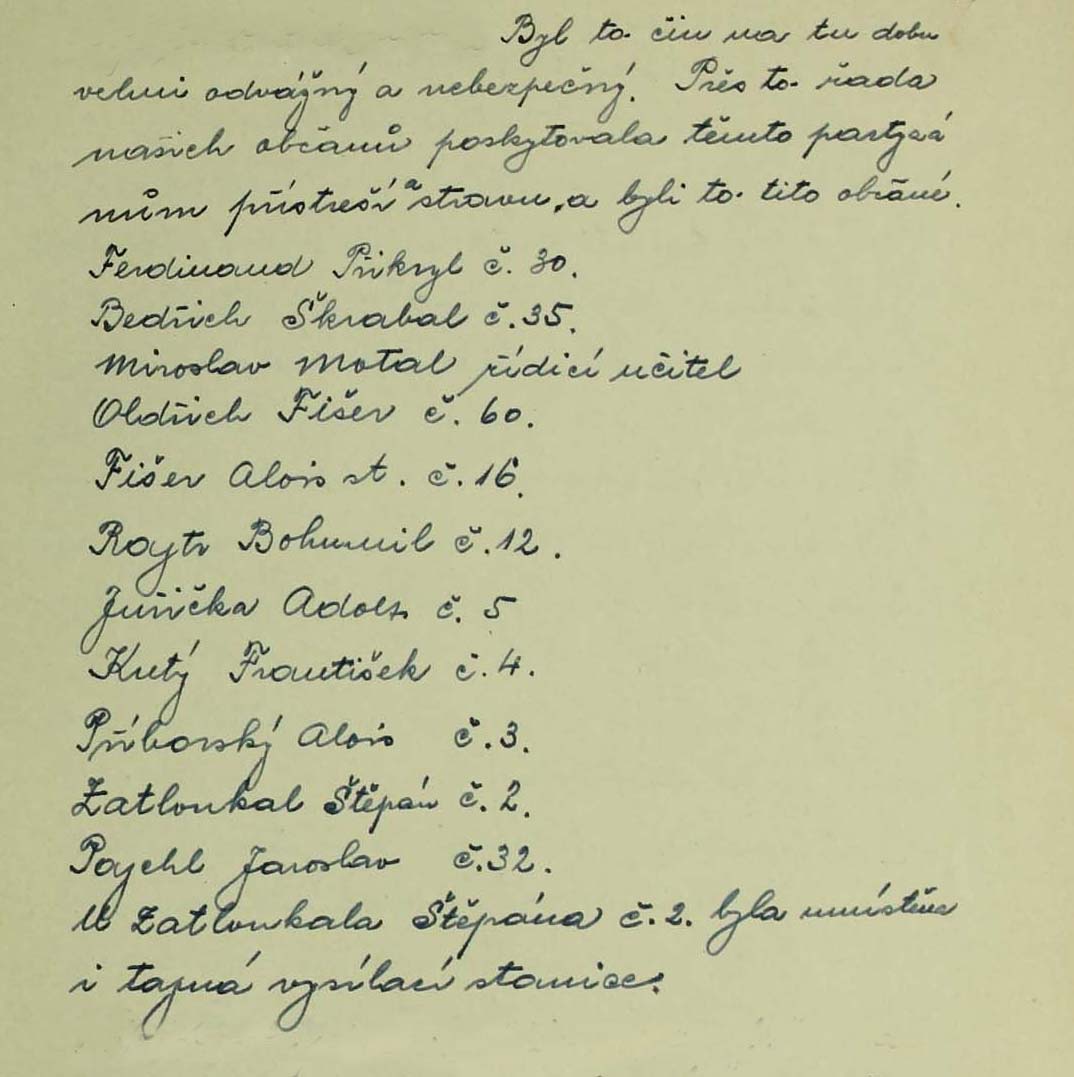 Byl to čin na tu dobu
velmi odvážný a nebezpečný. Přes to řada
našich občanů poskytovala těmto partyzá
nům přístřeší a stravu, a byli to tito občané.
Ferdinand Přikryl č. 30.
Bedřich Škrabal č. 35.
Miroslav Motal řídící učitel
Oldřich Fišer č. 60.
Fišer Alois st. č. 16.
Rajtr Bohumil č. 12.
Juřička Adolf č. 5
Krutý František č. 4.
Příborský Alois č. 3.
Zatloukal Štěpán č. 2.
Pajchl Jaroslav č. 32.
U Zatloukala Štěpána č. 2. byla umístěna
i tajná vysílací stanice.